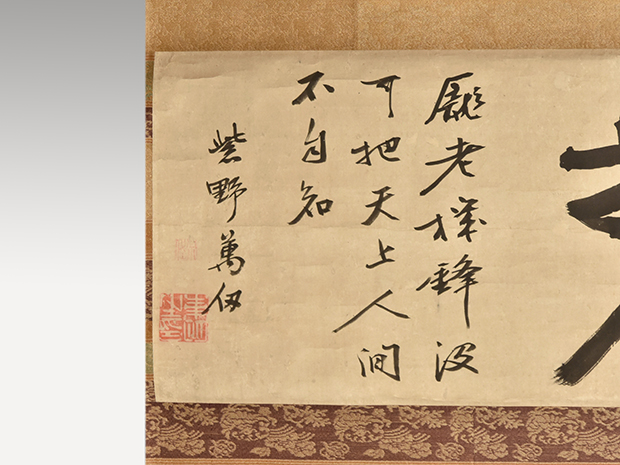 厖老機鋒没
可把天上人間
不自知
紫野萬仭